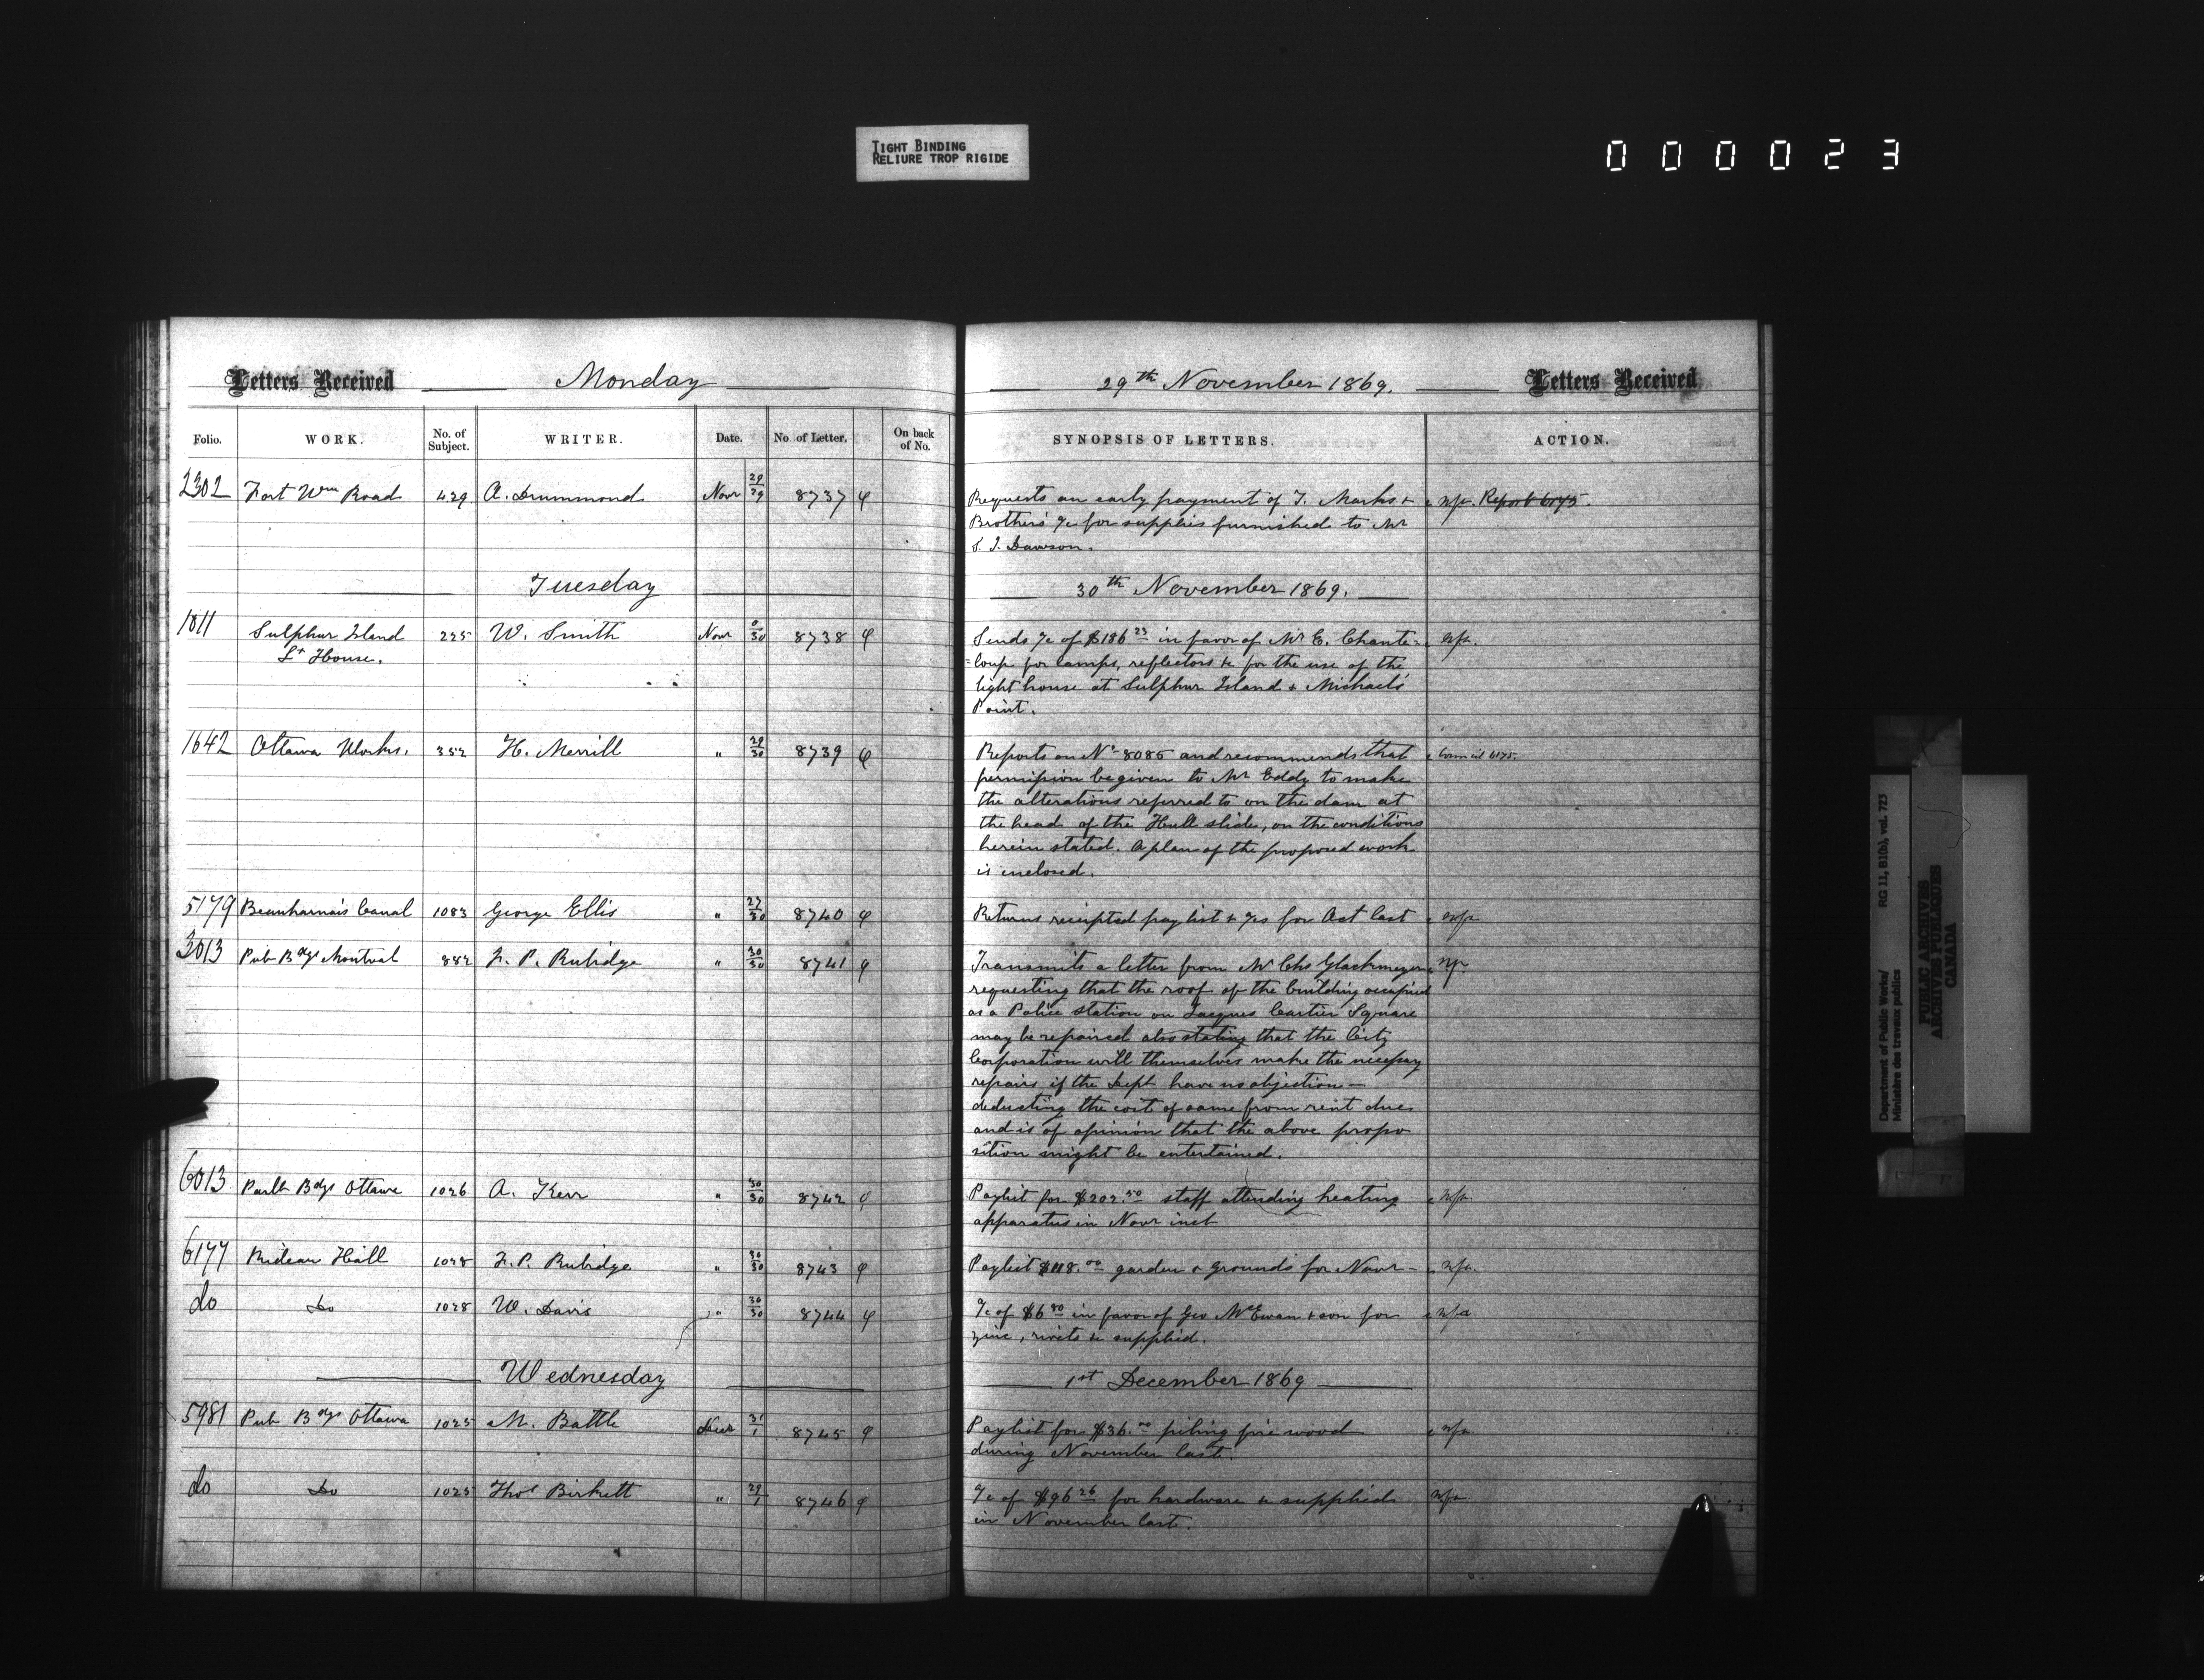 TIGHT BINDING
RELIURE TROP RIGIDE
000023
Letters Received Monday 29th November 1869. Letters Received
Folio. WORK. No. of Subject. WRITER. Date. No. of Letter. On back of No. SYNOPSIS OF LETTERS. ACTION.
2302 Fort Wm Road 429 A. Drummond Novr 29/29 8737 Requests an early payment of T. Marks & n/a. Report 6175.
Brothers' a/c for supplies furnished to Mr
S. J. Dawson.
Tuesday 30th November 1869.
1811 Sulphur Island 225 W. Smith Novr 0/30 8738 Sends a/c of $186 23 in favor of Mr E. Chante= n/a.
Lt House. =loup for lamps, reflectors &c for the use of the
light house at Sulphur Island & Michael's
Point.
1642 Ottawa Works. 352 H. Merrill " 29/30 8739 Reports on No 8085 and recommends that Council 6175.
permission be given to Mr Eddy to make
the alterations referred to on the dam at
the head of the Hull slide, on the conditions
herein stated. A plan of the proposed work
is enclosed.
5179 Beauharnois Canal 1083 George Ellis " 27/30 8740 Returns receipted pay list & a/cs for Oct last n/a
3013 Pub Bdgs Montreal 882 F. P. Rubidge " 30/30 8741 Transmits a letter from Mr Chs Glackmeyer n/a
requesting that the roof of the building occupied
as a Police station on Jacques Cartier Square
may be repaired also stating that the City
Corporation will themselves make the necessary
repairs if the Dept have no objection —
deducting the cost of same from rent due
and is of opinion that the above propo
sition might be entertained.
6013 Parlt Bdgs Ottawa 1026 A. Kerr " 30/30 8742 Paylist for $202.50 staff attending heating n/a.
apparatus in Novr inst
6177 Rideau Hall 1028 F. P. Rubidge " 30/30 8743 Paylist $118.00 garden & grounds for Novr — n/a.
do Do 1028 W. Davis " 30/30 8744 a/c of $6 80 in favor of Geo McEwan & son for n/a
zinc, rivets &c supplied.
Wednesday 1st December 1869
5981 Pub Bdgs Ottawa 1025 M. Battle Decr 31/1 8745 Paylist for $36.00 piling fire wood n/a
during November last.
do Do 1025 Thos Birkett " 29/1 8746 a/c of $96 26 for hardware &c supplied n/a
in November last.
Department of Public Works/ RG 11, B1(b), vol. 723
Ministère des travaux publics
PUBLIC ARCHIVES
ARCHIVES PUBLIQUES
CANADA